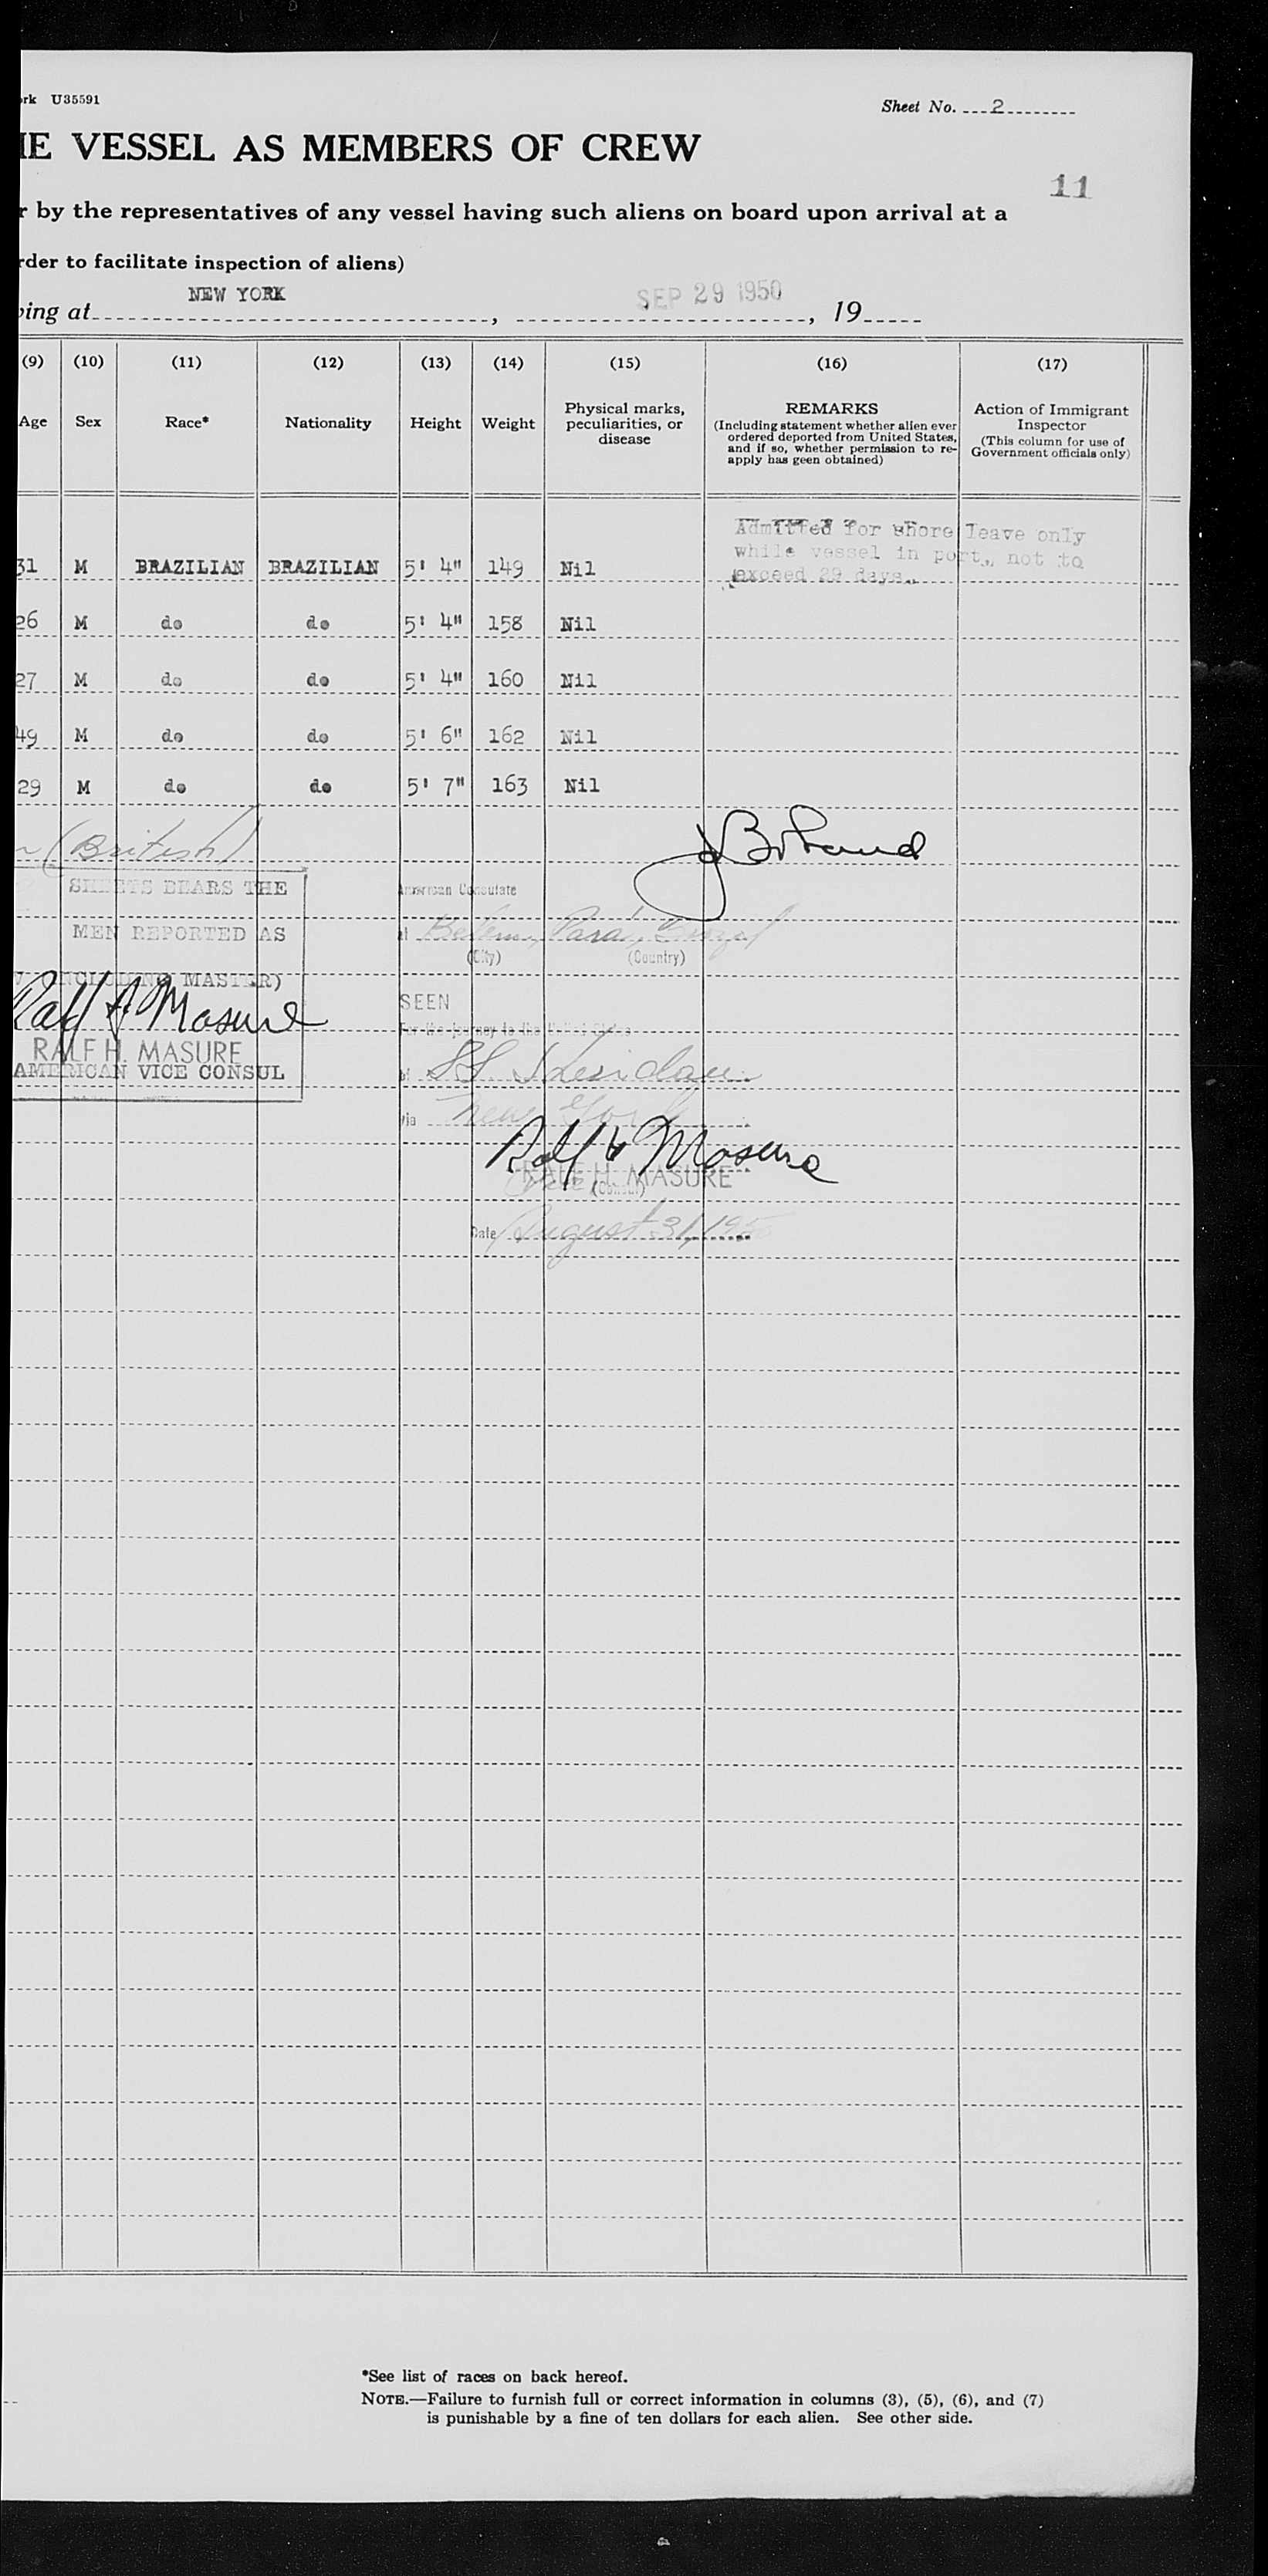 rk U35591
Sheet No. 2
E VESSEL AS MEMBERS OF CREW
11
r by the representatives of any vessel having such aliens on board upon arrival at a
rder to facilitate inspection of aliens)
ing at NEW YORK, SEP 29 1950, 19
(9) (10) (11) (12) (13) (14) (15) (16) (17)
Age Sex Race* Nationality Height Weight
Physical marks, peculiarities, or disease
REMARKS
(Including statement whether alien ever
ordered deported from United States,
and if so, whether permission to re-
apply has geen obtained)
Action of Immigrant
Inspector
(This column for use of
Government officials only)
Admitted for shore leave only
while vessel in port, not to
exceed 29 days.
31 M BRAZILIAN BRAZILIAN 5' 4" 149 Nil
26 M do do 5' 4" 158 Nil
27 M do do 5' 4" 160 Nil
49 M do do 5' 6" 162 Nil
29 M do do 5' 7" 163 Nil
(British)
SHEETS BEARS THE
MEN REPORTED AS
INCLUDING MASTER)
Ralf H Masure
RALF H. MASURE
AMERICAN VICE CONSUL
American Consulate
at Belem, Para, Brazil
(City) (Country)
SEEN
For the journey to the United States
SS Sheridan
via New York
Ralf H Masure
RALF H. MASURE
(Consul)
Date August 31, 195
*See list of races on back hereof.
NOTE.—Failure to furnish full or correct information in columns (3), (5), (6), and (7)
is punishable by a fine of ten dollars for each alien. See other side.